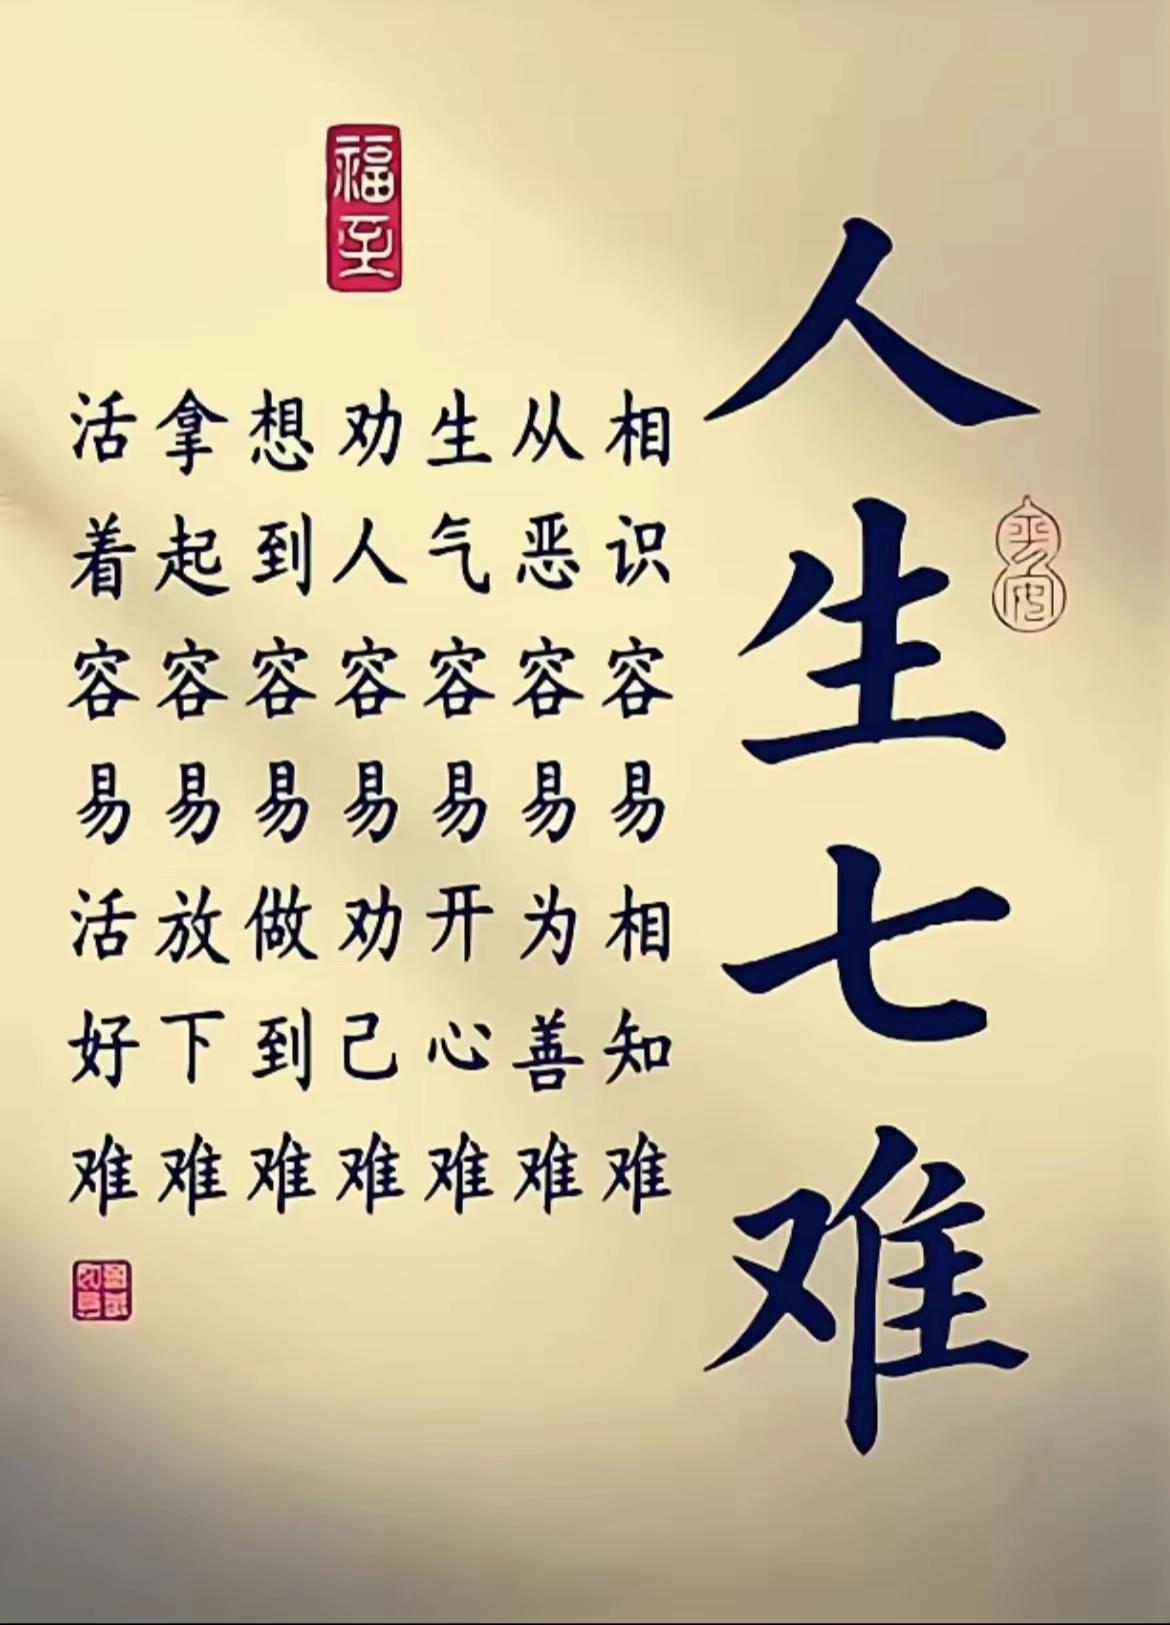 人生七难
相识容易相知难
从恶容易为善难
生气容易开心难
劝人容易劝己难
想到容易做到难
拿起容易放下难
活着容易活好难
福至